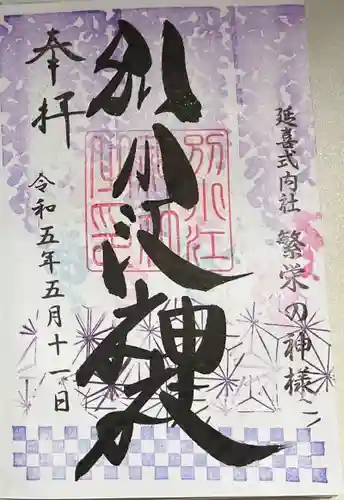 延喜式内社 繁栄の神様
別小江神社
奉拝
令和五年五月十一日